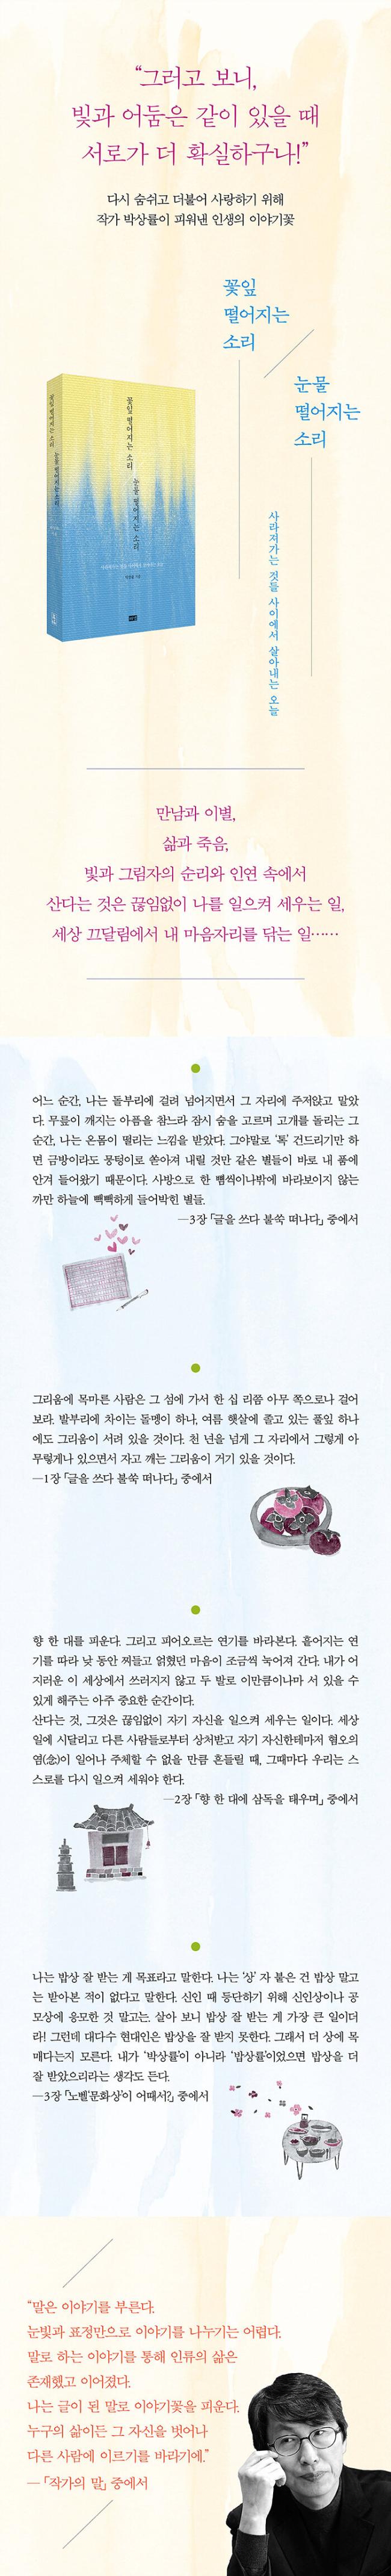 “그러고 보니,
빛과 어둠은 같이 있을 때
서로가 더 확실하구나!”
다시 숨쉬고 더불어 사랑하기 위해
작가 박상률이 피워낸 인생의 이야기꽃
꽃잎
떨어지는
소리
눈물
떨어지는
소리
사라져가는 것들 사이에서 살아내는 오늘
꽃잎 떨어지는 소리 눈물 떨어지는 소리
꽃잎 떨어지는 소리
눈물 떨어지는 소리
만남과 이별,
삶과 죽음,
빛과 그림자의 순리와 인연 속에서
산다는 것은 끊임없이 나를 일으켜 세우는 일,
세상 끄달림에서 내 마음자리를 닦는 일……
어느 순간, 나는 돌부리에 걸려 넘어지면서 그 자리에 주저앉고 말았
다. 무릎이 깨지는 아픔을 참느라 잠시 숨을 고르며 고개를 돌리는 그
순간, 나는 온몸이 떨리는 느낌을 받았다. 그야말로 ‘톡’ 건드리기만 하
면 금방이라도 뭉텅이로 쏟아져 내릴 것만 같은 별들이 바로 내 품에
안겨 들어왔기 때문이다. 사방으로 한 뼘씩이나밖에 바라보이지 않는
까만 하늘에 빽빽하게 들어박힌 별들.
—3장 「글을 쓰다 불쑥 떠나다」 중에서
그리움에 목마른 사람은 그 섬에 가서 한 십 리쯤 아무 쪽으로나 걸어
보라. 발부리에 차이는 돌멩이 하나, 여름 햇살에 졸고 있는 풀잎 하나
에도 그리움이 서려 있을 것이다. 천 년을 넘게 그 자리에서 그렇게 아
무렇게나 있으면서 자고 깨는 그리움이 거기 있을 것이다.
—1장 「글을 쓰다 불쑥 떠나다」 중에서
향 한 대를 피운다. 그리고 피어오르는 연기를 바라본다. 흩어지는 연
기를 따라 낮 동안 찌들고 얽혔던 마음이 조금씩 눅어져 간다. 내가 어
지러운 이 세상에서 쓰러지지 않고 두 발로 이만큼이나마 서 있을 수
있게 해주는 아주 중요한 순간이다.
산다는 것, 그것은 끊임없이 자기 자신을 일으켜 세우는 일이다. 세상
일에 시달리고 다른 사람들로부터 상처받고 자기 자신한테마저 혐오의
염(念)이 일어나 주체할 수 없을 만큼 흔들릴 때, 그때마다 우리는 스
스로를 다시 일으켜 세워야 한다.
—2장 「향 한 대에 삼독을 태우며」 중에서
나는 밥상 잘 받는 게 목표라고 말한다. 나는 ‘상’ 자 붙은 건 밥상 말고
는 받아본 적이 없다고 말한다. 신인 때 등단하기 위해 신인상이나 공
모상에 응모한 것 말고는. 살아 보니 밥상 잘 받는 게 가장 큰 일이더
라! 그런데 대다수 현대인은 밥상을 잘 받지 못한다. 그래서 더 상에 목
매다는지 모른다. 내가 ‘박상률’이 아니라 ‘밥상률’이었으면 밥상을 더
잘 받았으리라는 생각도 든다.
—3장 「‘노벨’문화상’이 어때서?」 중에서
“말은 이야기를 부른다.
눈빛과 표정만으로 이야기를 나누기는 어렵다.
말로 하는 이야기를 통해 인류의 삶은
존재했고 이어졌다.
나는 글이 된 말로 이야기꽃을 피운다.
누구의 삶이든 그 자신을 벗어나
다른 사람에 이르기를 바라기에.”
— 「작가의 말」 중에서